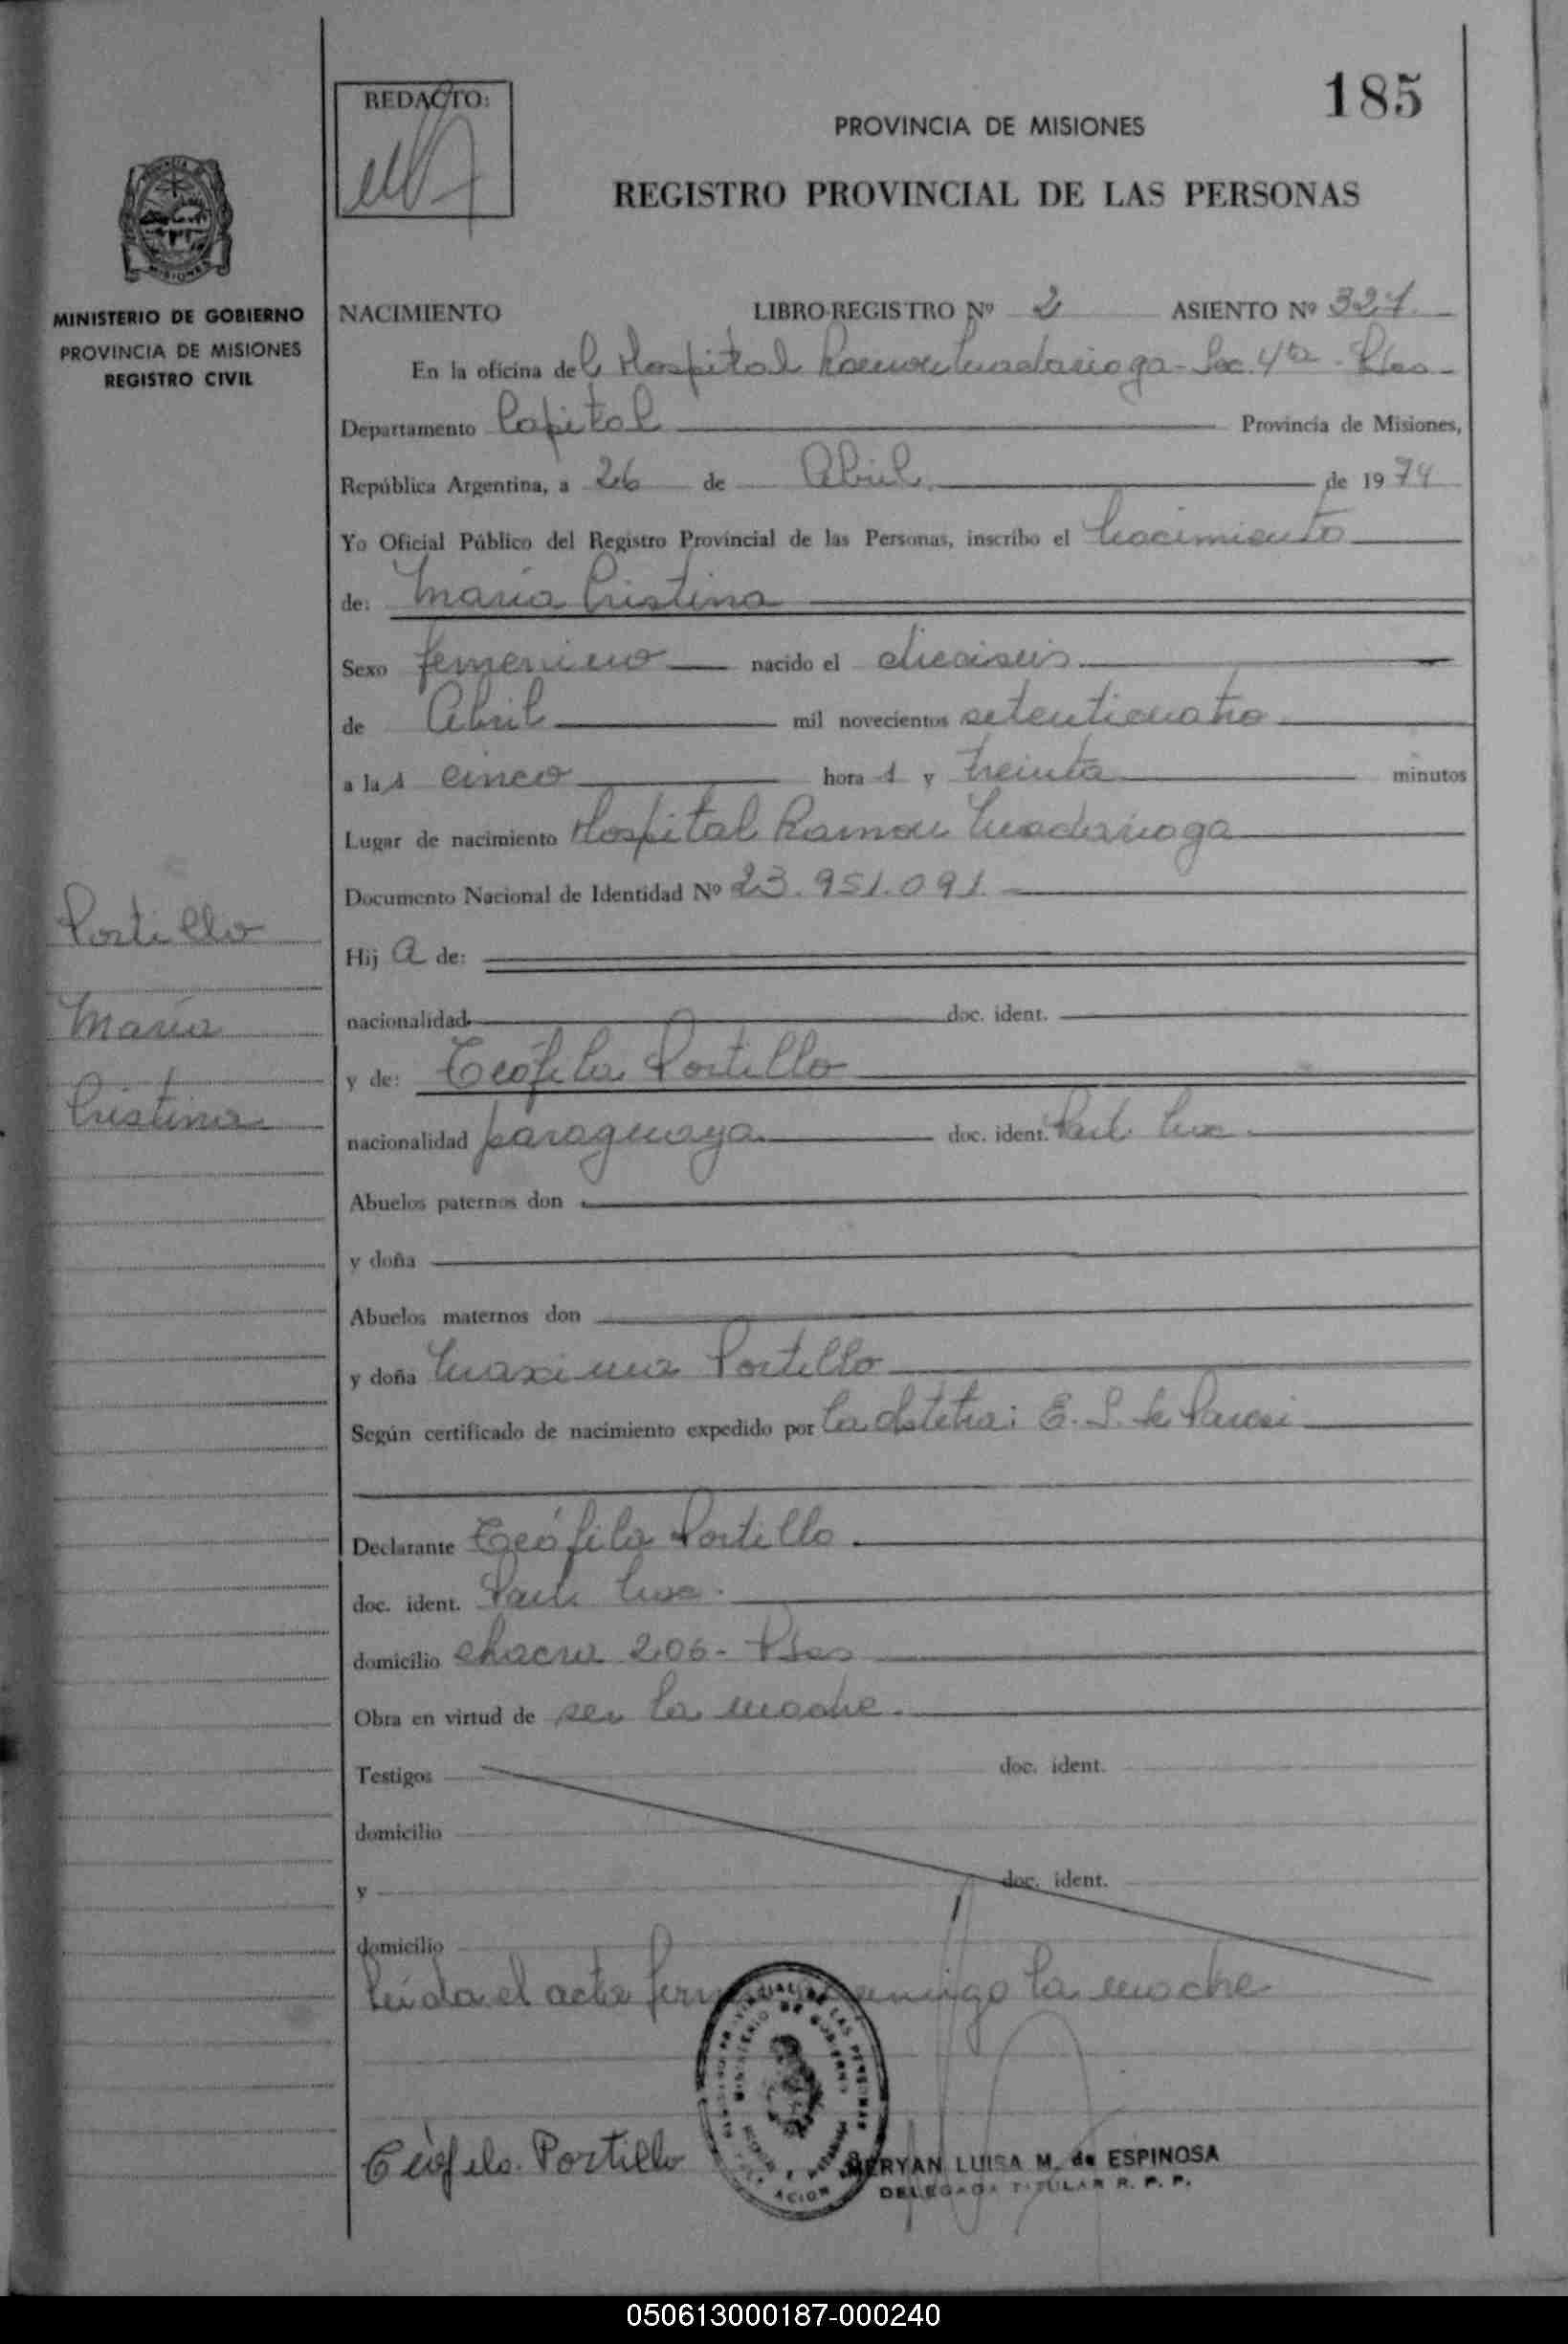 185
REDACTO:
PROVINCIA DE MISIONES
REGISTRO PROVINCIAL DE LAS PERSONAS
MINISTERIO DE GOBIERNO
PROVINCIA DE MISIONES
REGISTRO CIVIL
NACIMIENTO LIBRO-REGISTRO Nº 2 ASIENTO Nº 321
En la oficina del Hospital Ramon Madariaga - Sec. 4ta - Pdas
Departamento Capital Provincia de Misiones,
República Argentina, a 26 de Abril de 1974
Yo Oficial Público del Registro Provincial de las Personas, inscribo el Nacimiento
de: María Cristina
Sexo femenino nacido el dieciseis
de Abril mil novecientos setenticuatro
a las cinco horas y treinta minutos
Lugar de nacimiento Hospital Ramon Madariaga
Documento Nacional de Identidad Nº 23.951.091
Portillo
María
Cristina
Hija de:
nacionalidad doc. ident.
y de: Teófila Portillo
nacionalidad paraguaya doc. ident.
Abuelos paternos don
y doña
Abuelos maternos don
y doña Maxima Portillo
Según certificado de nacimiento expedido por la obstetra: E. S. de
Declarante Teófila Portillo
doc. ident.
domicilio chacra 206 - Pdas
Obra en virtud de ser la madre.
Testigos doc. ident.
domicilio
y doc. ident.
domicilio
Leída el acta firma conmigo la madre
Teófila Portillo
MERYAN LUISA M. de ESPINOSA
DELEGADA TITULAR R. P. P.
050613000187-000240